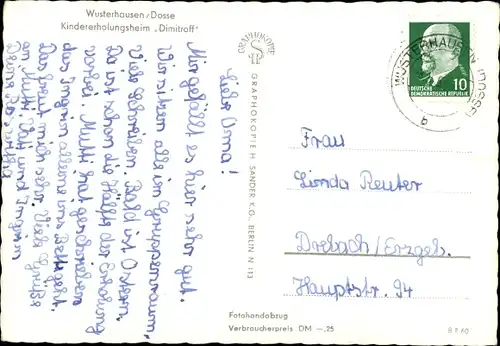 Wusterhausen/Dosse
Kindererholungsheim „Dimitroff"
Liebe Oma!
Mir gefällt es hier sehr gut.
Wir sitzen alle im Gruppenraum,
viele schreiben. Bald ist Ostern.
Da ist schon die Hälfte der Erholung
vorbei. Mutti hat geschrieben
das Ingmar alleine ins Bett geht.
Das freut mich sehr. Viele Grüße
an Mutti, Vati und Ingmar
Deine
GRAPHOKOPIE
GRAPHOKOPIE H. SANDER K.G., BERLIN N 113
WUSTERHAUSEN (DOSSE)
b
10
DEUTSCHE
DEMOKRATISCHE REPUBLIK
Frau
Linda Reuter
Drebach/Erzgeb.
Hauptstr. 94
Fotohandabzug
Verbraucherpreis DM –,25